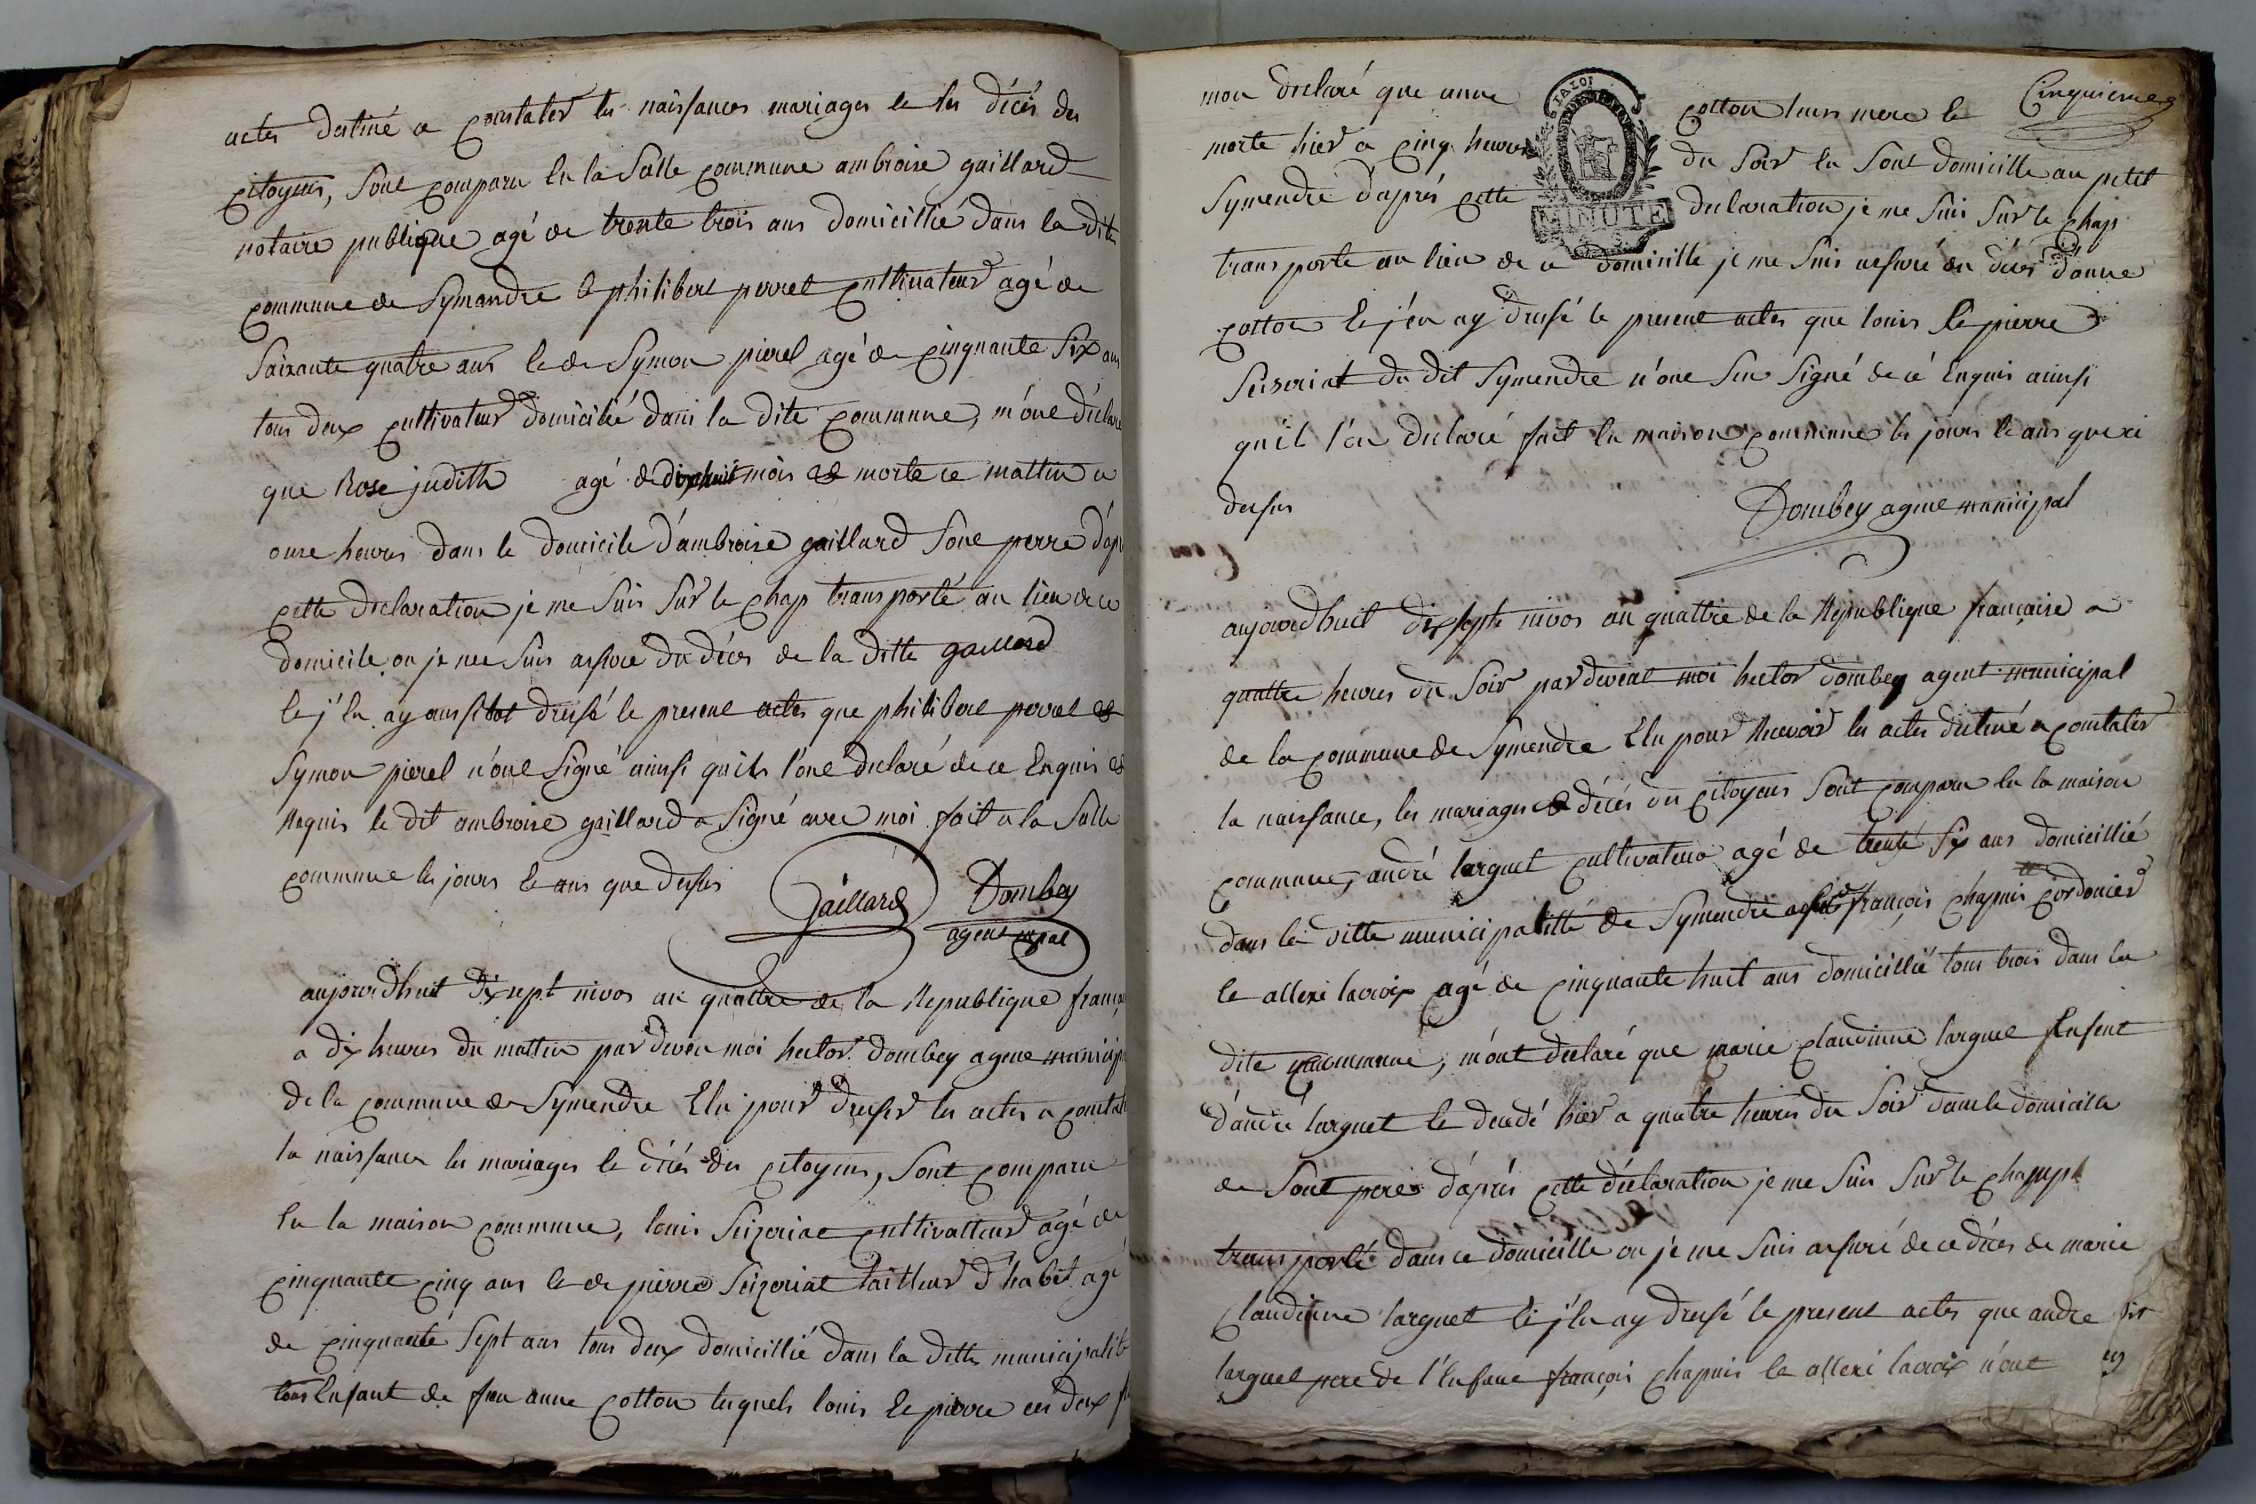 actes destiné a constater les naissances mariages et les décés des
citoyens, sont comparu en la salle commune ambroise gaillard
notaire publique agé de trente trois ans domicillié dans la dite
commune de Symandre et philibert perret cultivateur agé de
Soixante quatre ans et de Symon pierel agé de cinquante six ans
tous deux cultivateur domicilié dans la dite commune, m'ont déclaré
que Rose judith agé de dixhuit mois est morte ce mattin a
onze heures dans le domicile d'ambroise gaillard sont perre d'apr
cette declaration je me suis sur le chap transporté au lieu de ce
domicile ou je me suis assure du décés de la ditte gaillard
et j'en ay aussitot dressé le present actes que philibert perret et
Symon pierel n'ont signé ainsi qu'ils l'ont declaré de ce Enquis et
Requis le dit ambroise gaillard a signé avec moi fait a la Salle
commune les jours et ans que dessus
Gaillard Dombey
agent mpal
aujourdhuit dixsept nivos an quattre de la Republique françai
a dix heures du mattin par deven moi hector dombey agent municip
de la commune de Symendre Elu pour dresser les actes a constat
la naissance les mariages et décés des citoyens, sont comparu
En la maison commune, louis Seizeriat cultivatteur agé de
cinquante cinq ans et de pierre Seizeriat tailleur d'habit agé
de cinquante sept ans tous deux domicillié dans la ditte municipalité
tous Enfant de feu anne cotton lesquels louis et pierre ces deux
Cinquieme
mon declaré que anne cotton leurs mere et
morte hier a cinq heures du soir en sont domicille au petit
Symendre d'aprés cette declaration je me suis sur le chap
transporte au lieu de ce domicille je me suis assuré du décés d'anne
cotton et j'en ay dressé le present actes que louis et pierre
Seiseriat du dit Symendre n'ont seu signé de cé Enquis ainsi
quil l'on declaré fait en maison commune les jours et ans que ci
dessus
Dombey agent municipal
IALOI
MINUTE
aujourdhuit dixsepte nivos an quattre de la Republique française a
quattre heures du soir par devent moi hector dombey agent municipal
de la commune de Symendre Elu pour Recevoir les actes destiné a constater
la naissance, les mariages et décés des citoyens sont comparu en la maison
commune, andré larguet cultivateur agé de trente six ans domicillié
dans la ditte municipalitté de Symendre françois chapuis cordonier
et allexi lacroix agé de cinquante huit ans domicillié tous trois dans la
dite commune, m'ont declaré que marie claudinne larguet Enfent
d'andré larguet et decedé hier a quatre heures du soir dans le domicille
de sont pere d'aprés cette déclaration je me suis sur le chappt
transporté dans ce domicille ou je me suis assuré de ce décés de marie
Claudinne larguet et j'en ay dressé le present actes que andre
larguet pere de l'Enfant françois chapuis et allexi lacroix n'ont